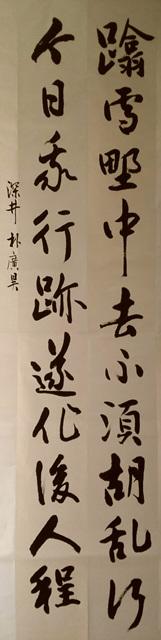 踏雪野中去不須胡乱行
今日我行跡遂作後人程
深井 朴廣昊